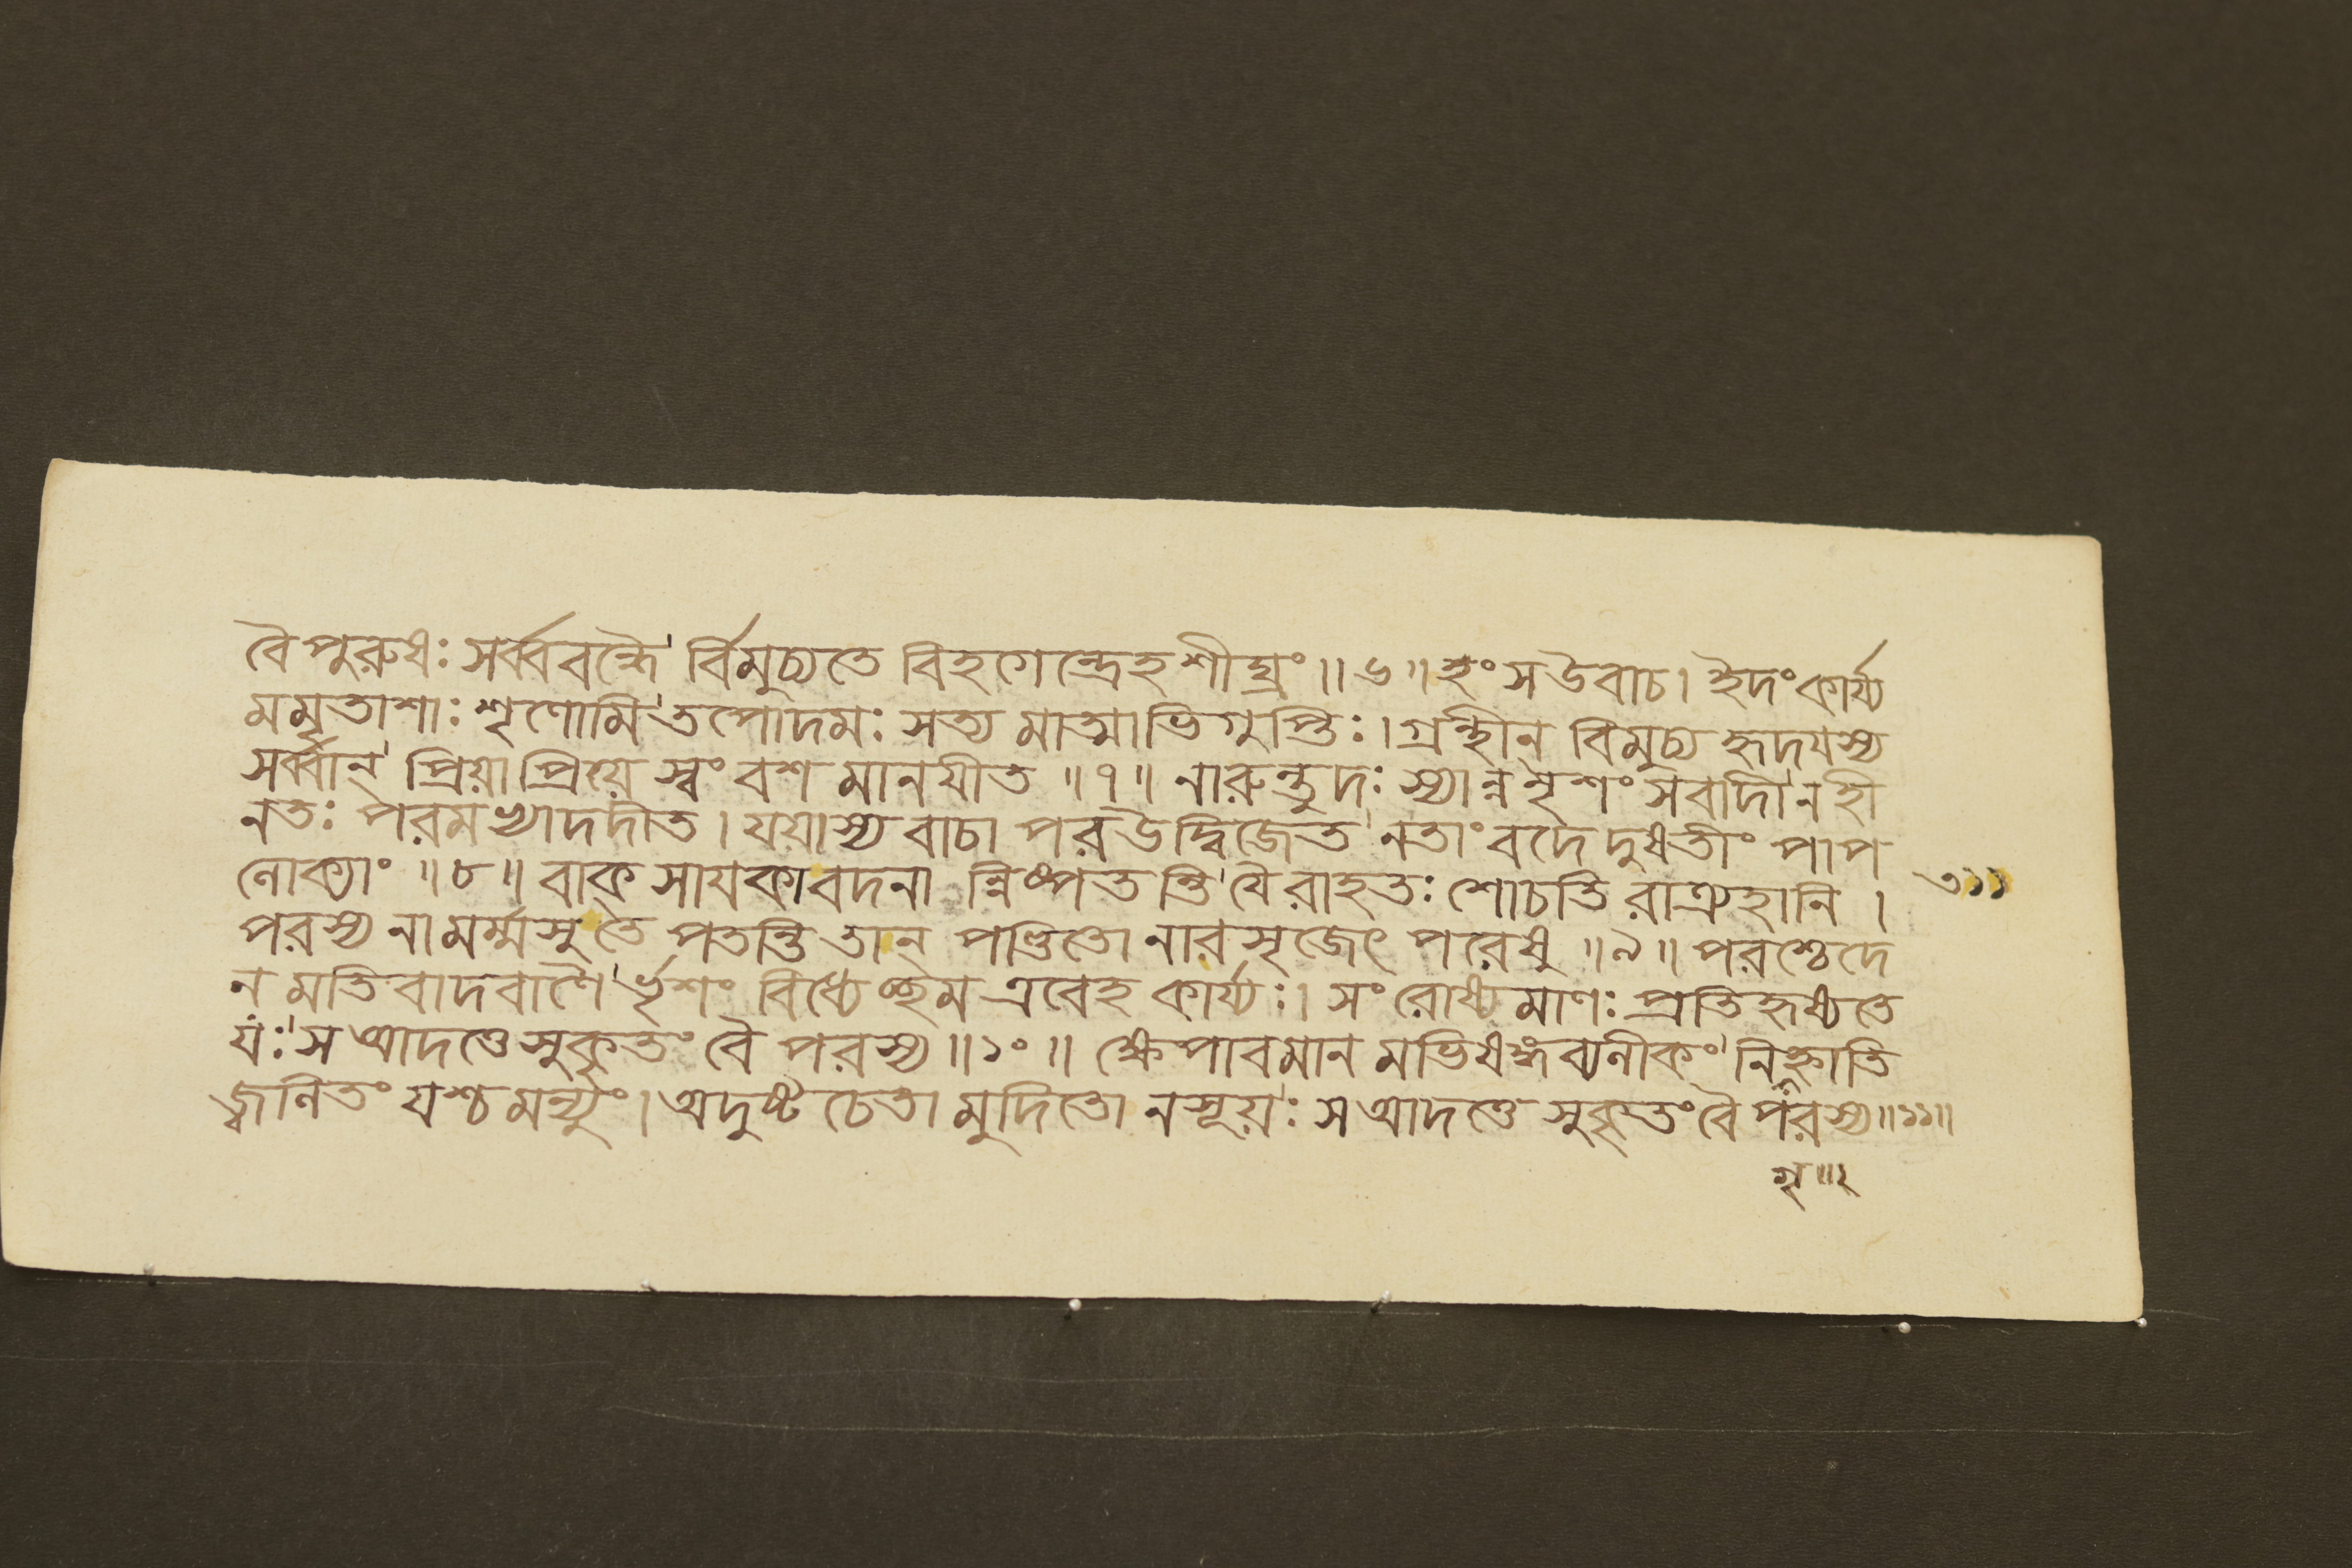 বৈপুরুষঃ সর্ব্ববন্ধৈ র্বিমুচ্যতে বিহগেন্দ্রেহ শীঘ্রং ॥ ৬ ॥ হংস উবাচ। ইদং কার্য্য
মমৃতাশাঃ শৃণোমি তপোদমঃ সত্য মাত্মাভিগুপ্তিঃ। গ্রন্থীন্ বিমুচ্য হৃদযস্য
সর্ব্বান্ প্রিয়াপ্রিয়ে স্বং বশ মানযীত ॥ ৭ ॥ নারুন্তুদঃ স্যান্ন নৃশংসবাদী নহী
নতঃ পরমভ্যাদদীত। যয়াস্য বাচা পর উদ্বিজেত নতাং বদে দুষতীং পাপ
লোক্যাং ॥ ৮ ॥ বাক সাযকা বদনা ন্নিষ্পতন্তি যৈরাহতঃ শোচতি রাত্র্যহানি।
পরস্য নামর্ম্মসু তে পতন্তি তান্ পণ্ডিতো নারসৃজেৎ পরেষু ॥ ৯ ॥ পরশ্চেদে
ন মতিবাদবাণৈ র্ভৃশং বিধ্যেচ্ছম এবেহ কার্য্যঃ। সংরোষ্যমাণঃ প্রতিহৃষ্যতে
যঃ স আদত্তে সুকৃতং বৈ পরস্য ॥ ১০ ॥ ক্ষেপাবমান মভিষঙ্গব্যনীকং নিগৃহ্ণাতি
জ্বনিতং যশ্চ মন্যুং। অদুষ্ট চেতা মুদিতো নসূয়ঃ স আদত্তে সুকৃতং বৈ পরস্য ॥ ১১ ॥
৩১১